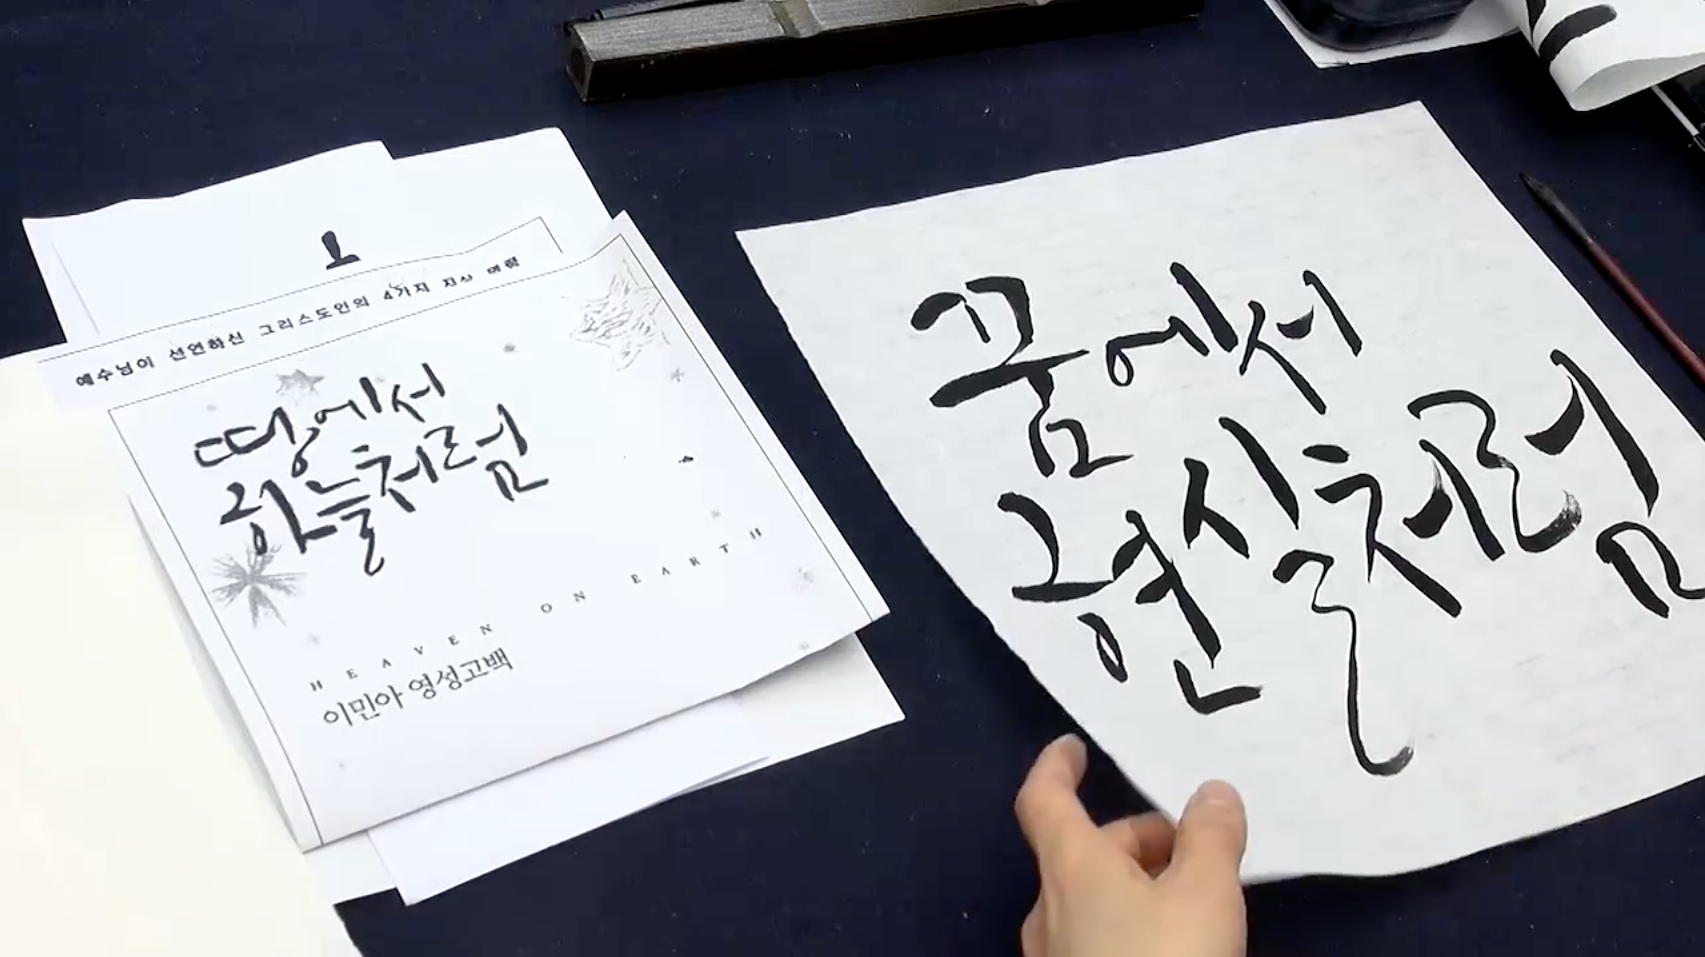 예수님이 선언하신 그리스도인의 4가지 지상 명령
땅에서
하늘처럼
HEAVEN ON EARTH
이민아 영성고백
꿈에서
현실처럼